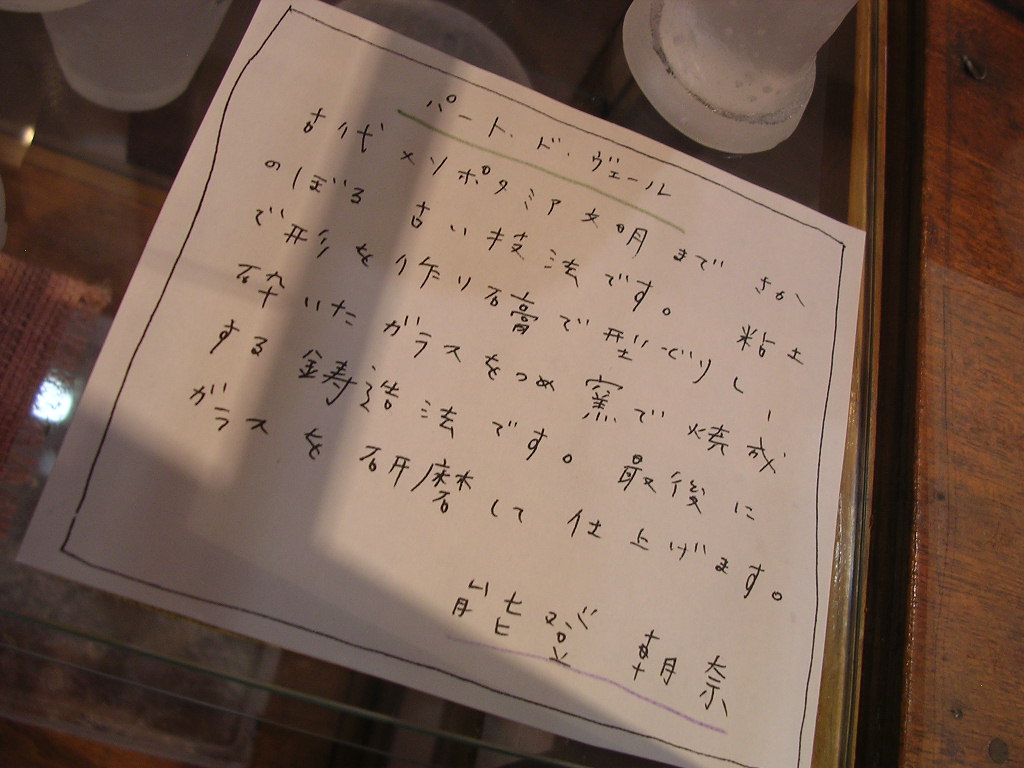 パート・ド・ヴェール
古代メソポタミア文明までさか
のぼる古い技法です。粘土
で形を作り石膏で型どりし、
砕いたガラスをつめ窯で焼成
する鋳造法です。最後に
ガラスを研磨して仕上げます。
能登 朝奈